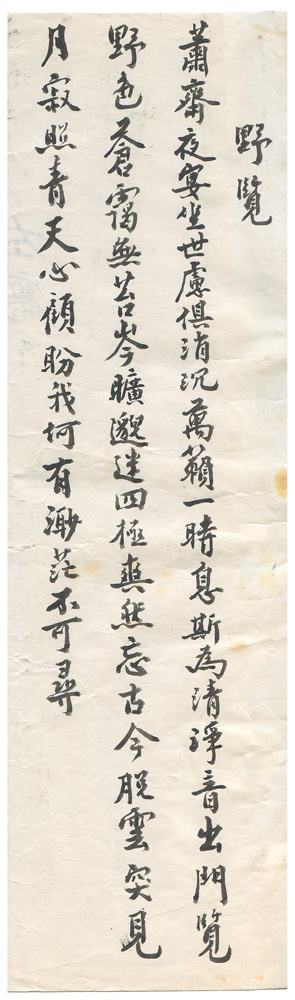 野覽
蕭齋夜宴坐世慮俱消沉萬籟一時息斯為清淨音出門覽
野色蒼靄無苔岑曠邈迷四極爽然忘古今脫雲突見
月寂照青天心顧盼我何有渺茫不可尋